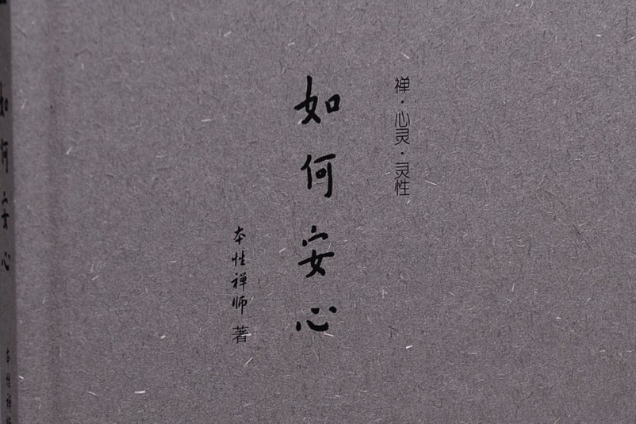 禅·心灵·灵性
如何安心
本性禅师 著
如何安心
本性禅师